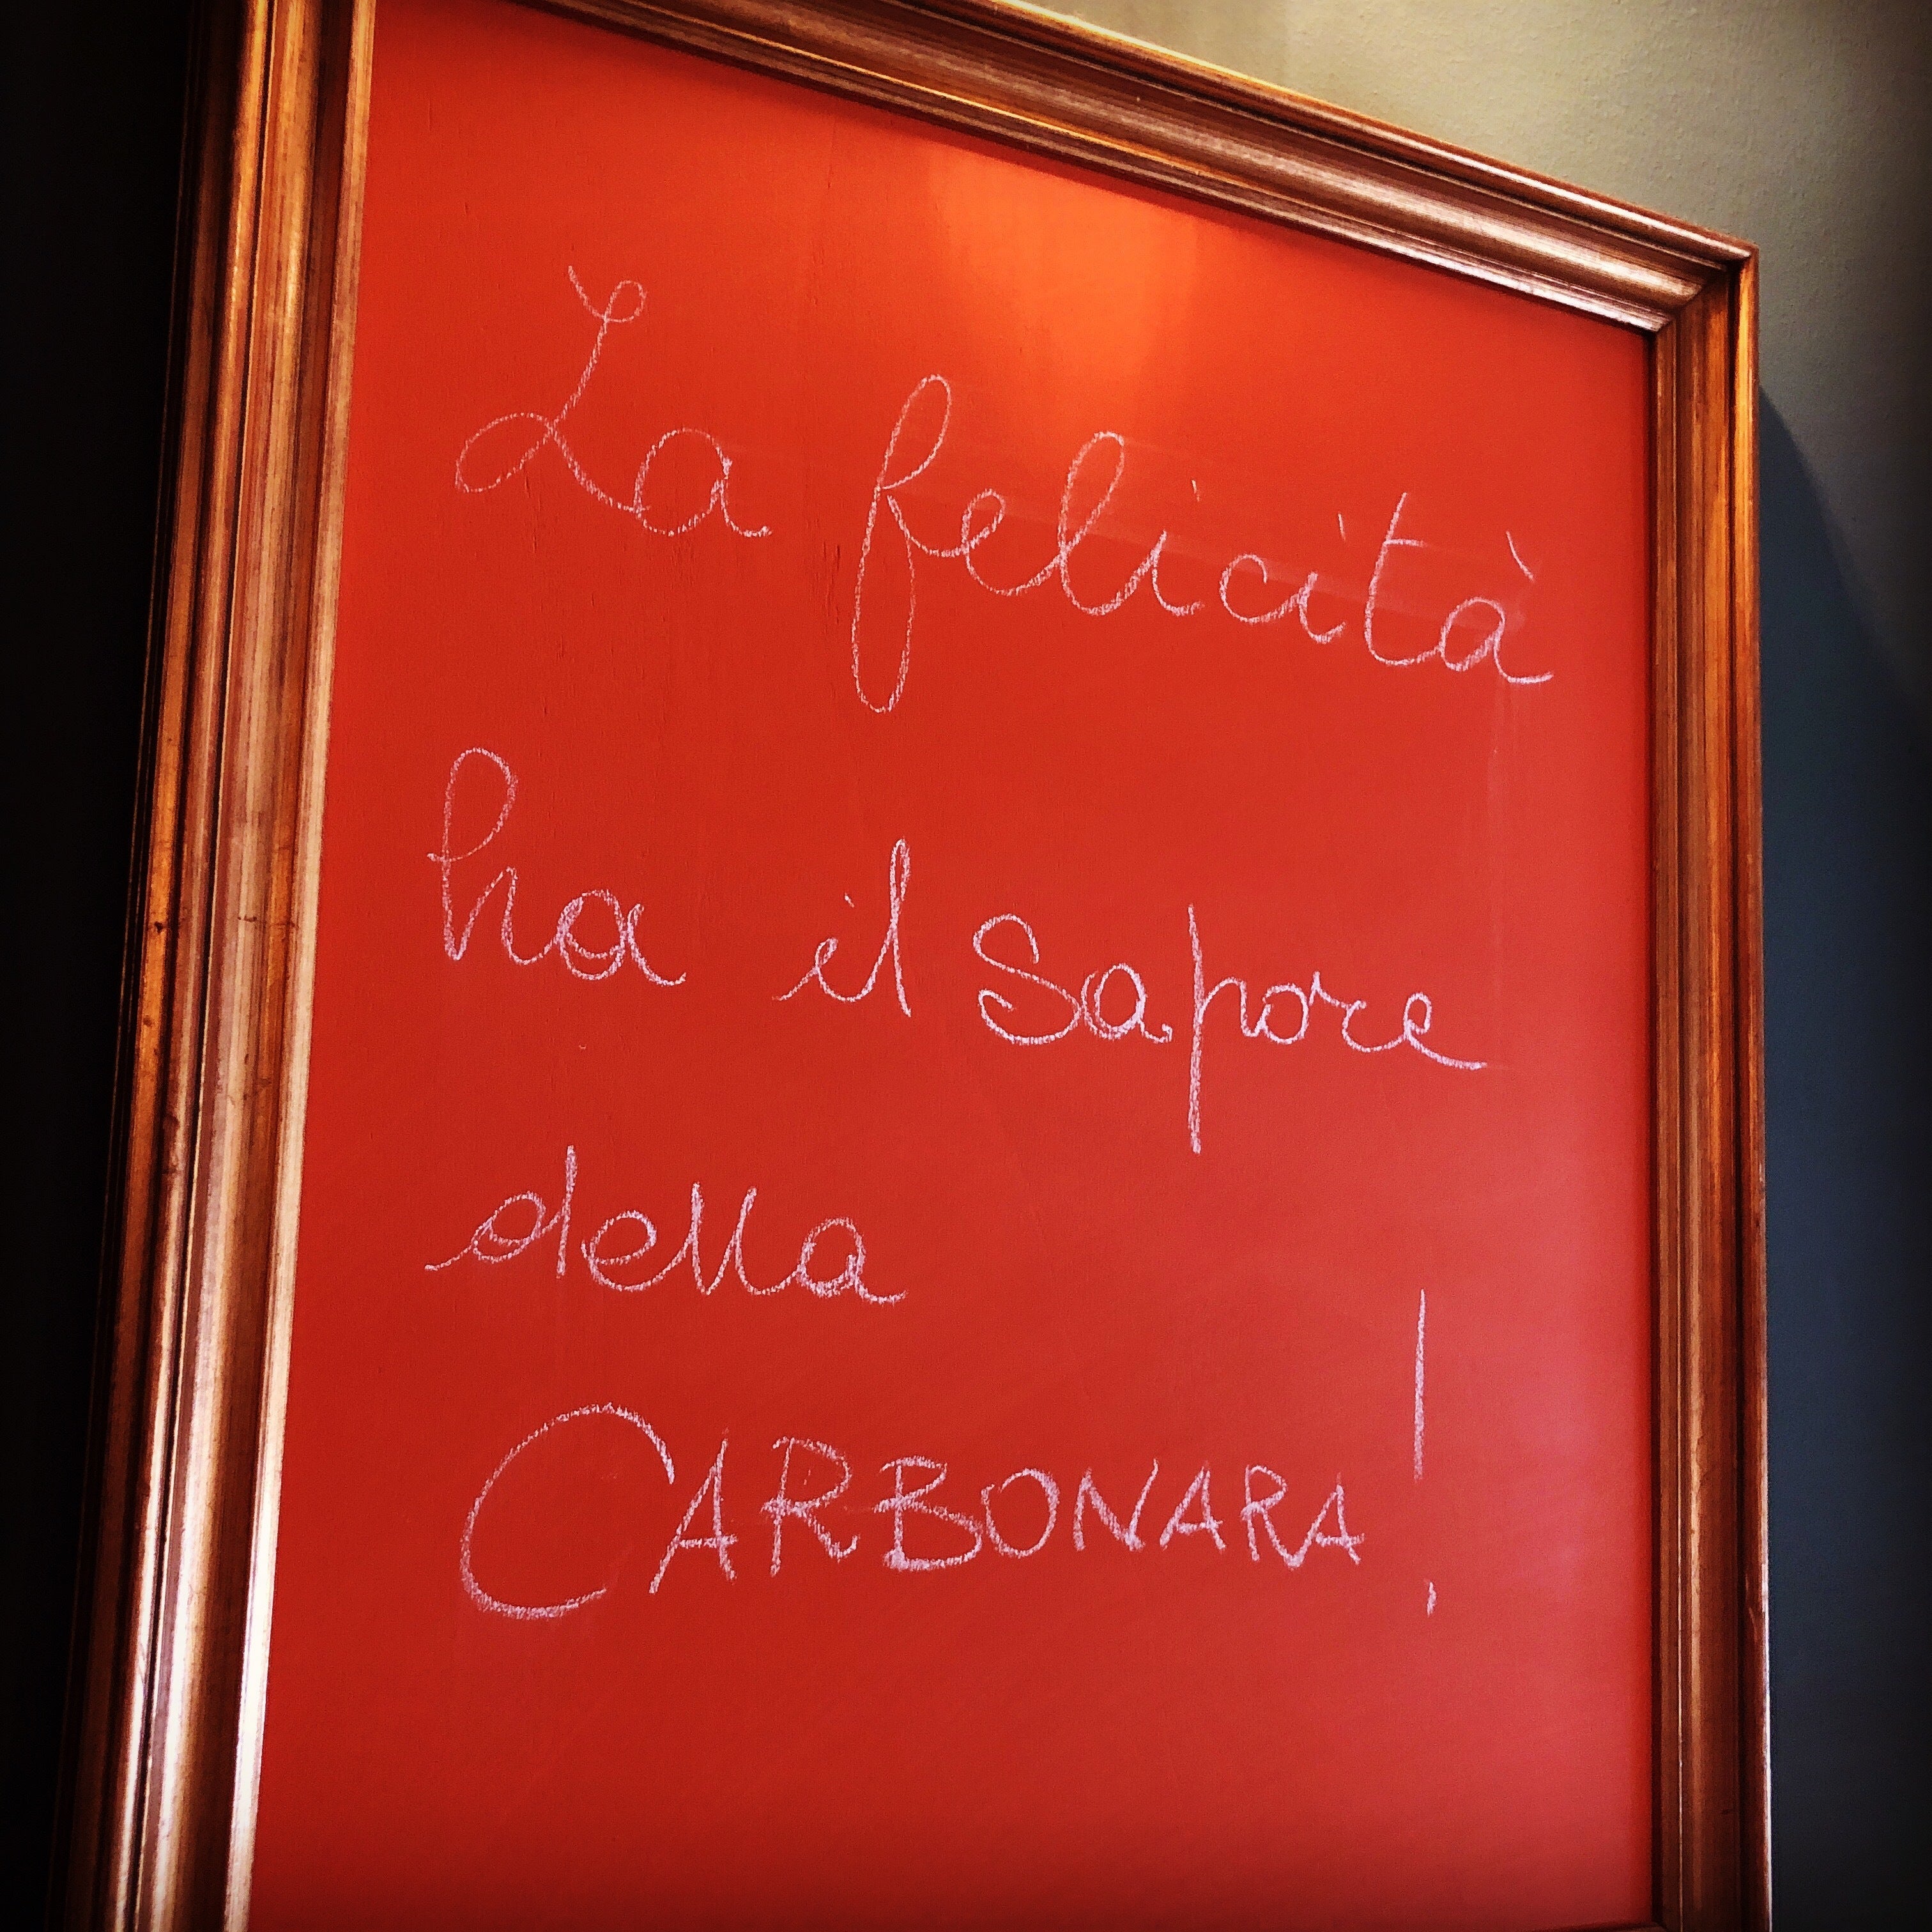 La felicità
ha il sapore
della
CARBONARA!